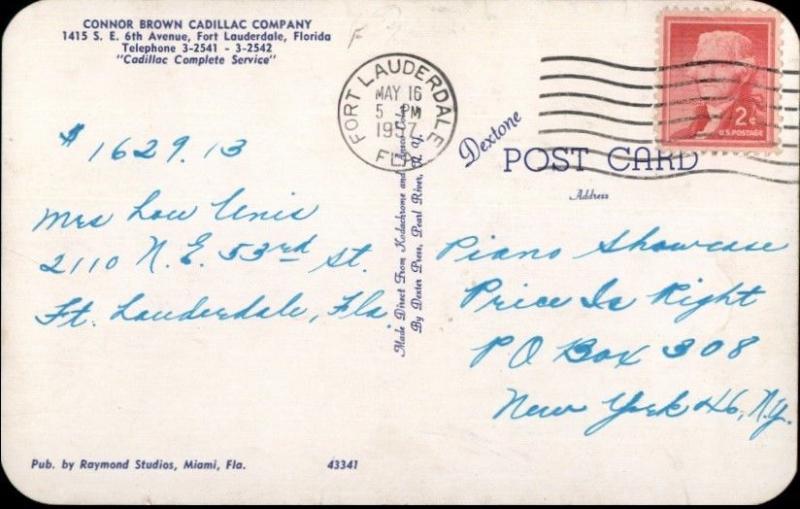 CONNOR BROWN CADILLAC COMPANY
1415 S. E. 6th Avenue, Fort Lauderdale, Florida
Telephone 3-2541 - 3-2542
"Cadillac Complete Service"
FORT LAUDERDALE
MAY 16
5 PM
1957
FLA.
2¢
U.S. POSTAGE
Dextone
POST CARD
Address
$1629.13
Mrs Lou Unis
2110 N.E. 53rd St.
Ft. Lauderdale, Fla.
Made Direct From Kodachrome and
By Dexter Press, Pearl River, N. Y.
Piano Showcase
Price Is Right
PO Box 308
New York 46, N.Y.
Pub. by Raymond Studios, Miami, Fla.
43341